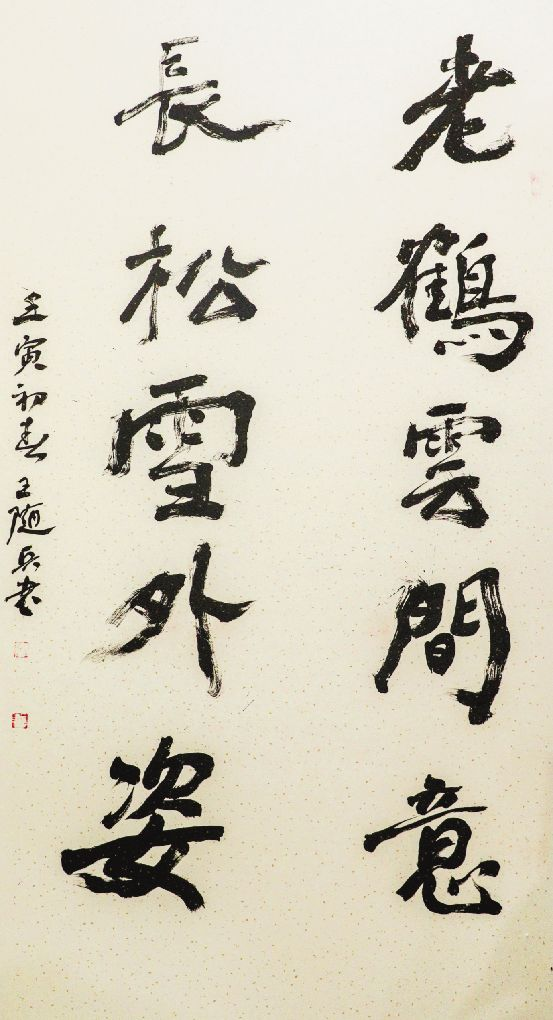 老鶴雲間意
長松雪外姿
壬寅初春王随兵书